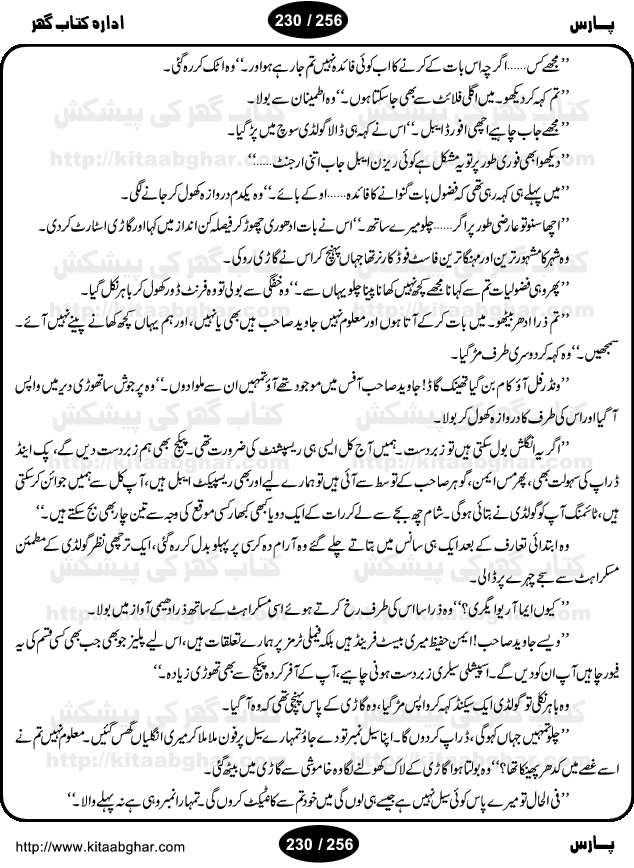 ادارہ کتاب گھر
230 / 256
پارس
’’مجھے کس......اگرچہ اس بات کے کرنے کا اب کوئی فائدہ نہیں تم جارہے ہو اور۔‘‘ وہ اٹک کر رہ گئی۔
’’تم کہہ کر دیکھو۔ میں اگلی فلائٹ سے بھی جا سکتا ہوں۔‘‘ وہ اطمینان سے بولا۔
’’مجھے جاب چاہیے اچھی افورڈ ایبل۔‘‘ اس نے کہہ ہی ڈالا گولڈی سوچ میں پڑ گیا۔
’’دیکھو ابھی فوری طور پر تو یہ مشکل ہے کوئی ریزن ایبل جاب اتنی ارجنٹ......‘‘
’’میں پہلے ہی کہہ رہی تھی کہ فضول بات گنوانے کا فائدہ......او کے بائے۔‘‘ وہ یکدم دروازہ کھول کر جانے لگی۔
’’اچھا سنو تو عارضی طور پر اگر......چلو میرے ساتھ۔‘‘ اس نے بات ادھوری چھوڑ کر فیصلہ کن انداز میں کہا اور گاڑی اسٹارٹ کر دی۔
وہ شہر کا مشہور ترین اور مہنگا ترین فاسٹ فوڈ کارنر تھا جہاں پہنچ کر اس نے گاڑی روکی۔
’’پھر وہی فضولیات تم سے کہا نا مجھے کچھ نہیں کھانا پینا چلو یہاں سے۔‘‘ وہ خفگی سے بولی تو وہ فرنٹ ڈور کھول کر باہر نکل گیا۔
’’تم ذرا ادھر بیٹھو۔ میں بات کر کے آتا ہوں اور معلوم نہیں جاوید صاحب ہیں بھی یا نہیں، اور ہم یہاں کچھ کھانے پینے نہیں آئے۔
سمجھیں۔‘‘ وہ کہہ کر دوسری طرف مڑ گیا۔
’’ونڈرفل آؤ کام بن گیا تھینک گاڈ! جاوید صاحب آفس میں موجود تھے آؤ تمہیں ان سے ملوا دوں۔‘‘ وہ پرجوش سا تھوڑی دیر میں واپس
آ گیا اور اس کی طرف کا دروازہ کھول کر بولا۔
’’اگر یہ انگلش بول سکتی ہیں تو زبردست۔ ہمیں آج کل ایسی ہی ریسپشنٹ کی ضرورت تھی۔ پیکج بھی ہم زبردست دیں گے، پک اینڈ
ڈراپ کی سہولت بھی، پھر مس ایمن، گوہر صاحب کے توسط سے آئی ہیں تو ہمارے لیے اور بھی ریسپیکٹ ایبل ہیں، آپ کل سے ہمیں جوائن کر سکتی
ہیں، ٹائمنگ آپ کو گولڈی نے بتائی ہوگی۔ شام چھ بجے سے لے کر رات کے ایک دو یا کبھی کبھار کسی موقع کی وجہ سے تین چار بھی بج سکتے ہیں۔‘‘
وہ ابتدائی تعارف کے بعد ایک ہی سانس میں بتاتے چلے گئے وہ آرام دہ کرسی پر پہلو بدل کر رہ گئی، ایک ترچھی نظر گولڈی کے مطمئن
مسکراہٹ سے سجے چہرے پر ڈالی۔
’’کیوں ایما آر یو ایگری؟‘‘ وہ ذرا سا اس کی طرف رخ کرتے ہوئے اسی مسکراہٹ کے ساتھ ذرا دھیمی آواز میں بولا۔
’’ویسے جاوید صاحب! ایمن حفیظ میری بیسٹ فرینڈ ہیں بلکہ فیملی ٹرمز پر ہمارے تعلقات ہیں، اس لیے پلیز جو بھی جب بھی کسی قسم کی یہ
فیور چاہیں آپ ان کو دیں گے۔ اسپیشلی سیلری زبردست ہونی چاہیے، آپ کے آفر کردہ پیکج سے بھی تھوڑی زیادہ۔‘‘
وہ باہر نکلی تو گولڈی ایک سیکنڈ کہہ کر واپس مڑ گیا، وہ گاڑی کے پاس پہنچی تھی کہ وہ آ گیا۔
’’چلو تمہیں جہاں کہو گی، ڈراپ کر دوں گا۔ اپنا سیل نمبر تو دے جاؤ تمہارے سیل پر فون ملا ملا کر میری انگلیاں گھس گئیں۔ معلوم نہیں تم نے
اسے غصے میں کدھر پھینکا تھا؟‘‘ وہ بولتا ہوا گاڑی کے لاک کھولنے لگا وہ خاموشی سے گاڑی میں بیٹھ گئی۔
’’فی الحال تو میرے پاس کوئی سیل نہیں ہے جیسے ہی لوں گی میں خود تم سے کانٹیکٹ کروں گی۔ تمہارا نمبر وہی ہے نہ پہلے والا۔‘‘
http://www.kitaabghar.com
230 / 256
پارس